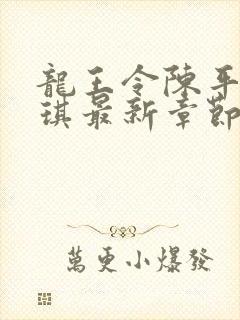 龍王令陳平
琪最新章節
萬更小爆發